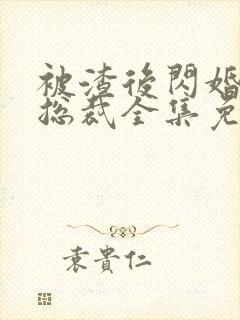 被渣後閃婚
總裁全集免
袁貴仁